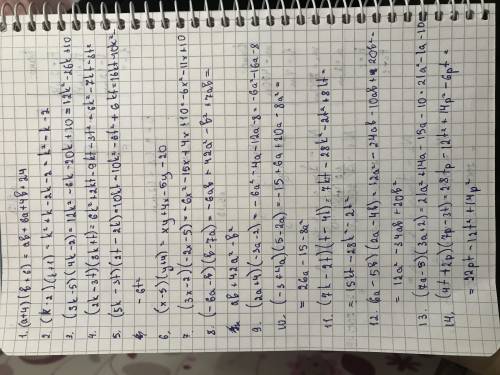 1. (a+4)(b+6) = ab+6a+4b+24
2. (k-2)(k+1) = k²+k-2k-2 = k²-k-2
3. (3k-5)(4k-2) = 12k²-6k-20k+10 = 12k²-26k+10
4. (2k-3t)(3k+t) = 6k²+2kt-9kt-3t² = 6k²-7kt-3t²
5. (5k-3t)(2t-2k) = 10kt-10k²-6t²+6kt = 16kt-10k²-
-6t²
6. (x-5)(y+4) = xy+4x-5y-20
7 (3x-2)(-2x-5) = -6x²-15x+4x+10 = -6x²-11x+10
8. (-6a-b)(b-7a) = -6ab+42a²-b²+7ab =
ab+42a²-b²
9. (2a+4)(-3a-2) = -6a²-4a-12a-8 = -6a²-16a-8
10. (-3+4a)(5-2a) = -15+6a+20a-8a² =
= 26a-15-8a²
11. (7k-2t)(t-4k) = 7kt-28k²-2t²+8kt =
= 15kt-28k²-2t²
12. (6a-5b)(2a-4b) = 12a²-24ab-10ab+20b²=
= 12a²-34ab+20b²
13. (7a-5)(3a+2) = 21a²+14a-15a-10 = 21a²-1a-10
14. (4t+2p)(7p-3t) = 28tp-12t²+14p²-6pt =
= 22pt-12t²+14p²